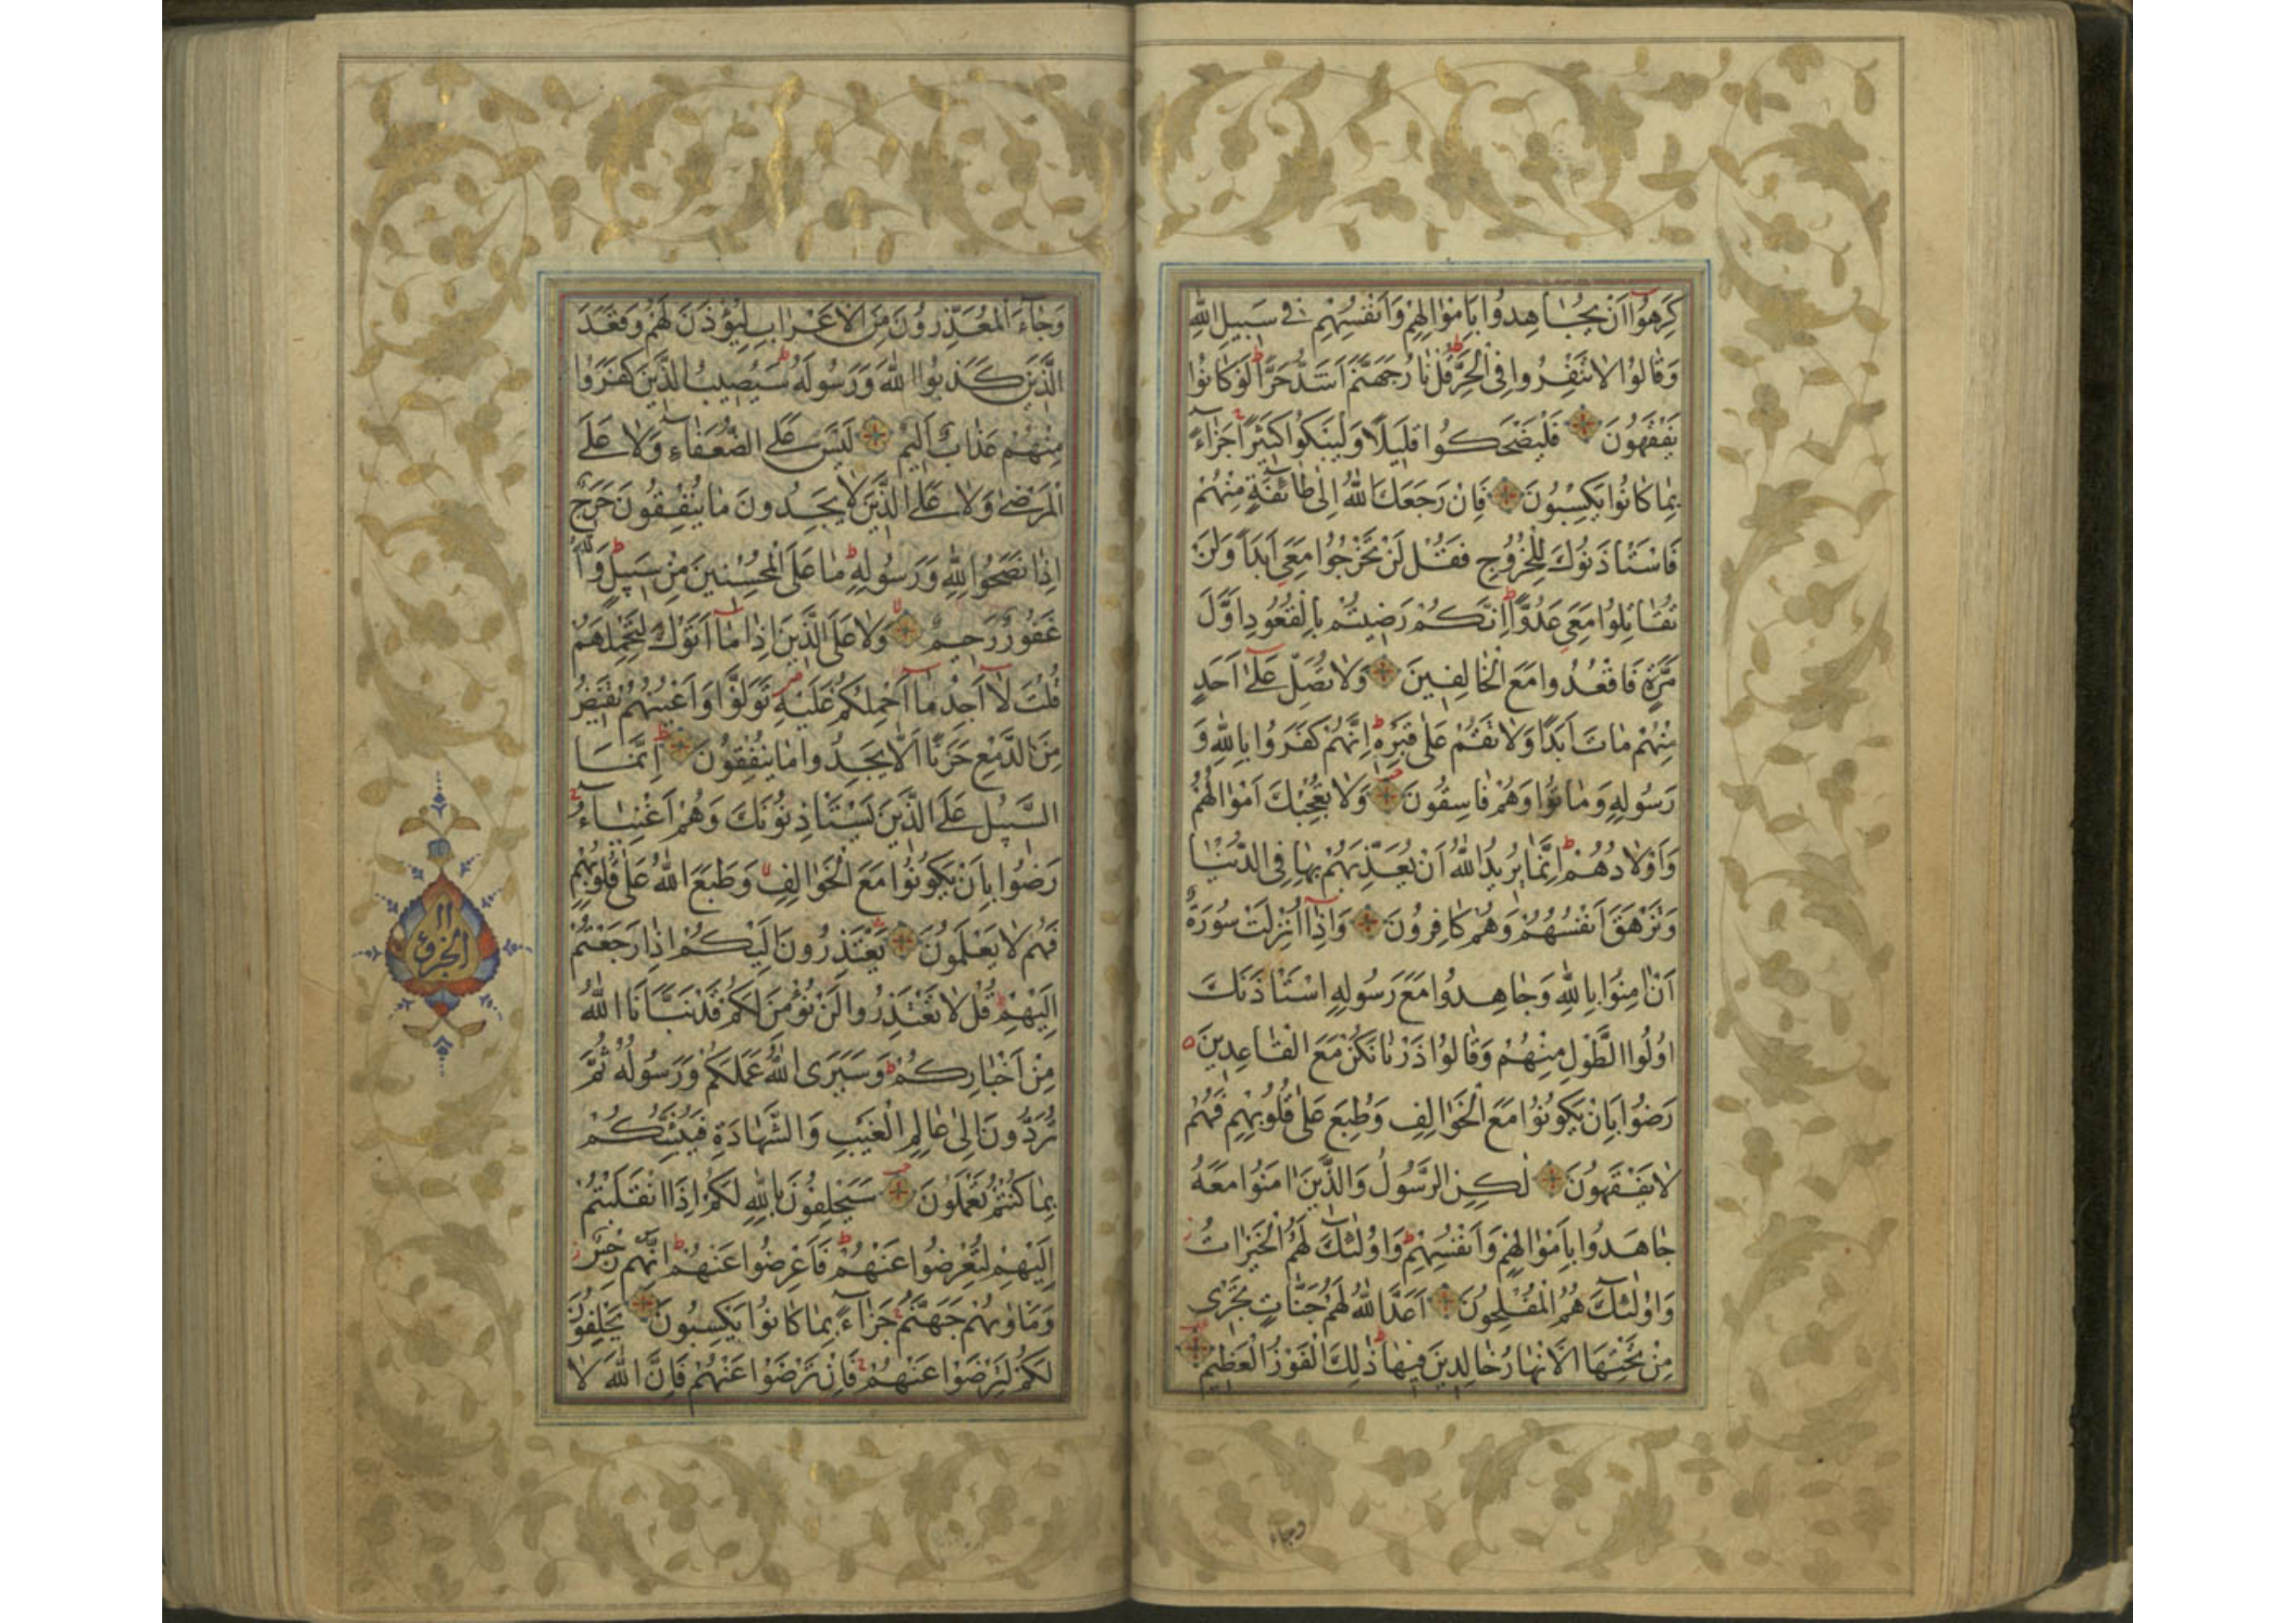 كَرِهُوٓا اَنْ يُجَاهِدُوا بِاَمْوٰالِهِمْ وَاَنْفُسِهِمْ فِى سَبِيلِ اللّٰهِ
وَقٰالُوا لٰا تَنْفِرُوا فِى الْحَرِّ قُلْ نٰارُ جَهَنَّمَ اَشَدُّ حَرًّا لَوْ كٰانُوا
يَفْقَهُونَ فَلْيَضْحَكُوا قَلِيلًا وَلْيَبْكُوا كَثِيرًا جَزٰاءً
بِمٰا كٰانُوا يَكْسِبُونَ فَاِنْ رَجَعَكَ اللّٰهُ اِلٰى طٰائِفَةٍ مِنْهُمْ
فَاسْتَأْذَنُوكَ لِلْخُرُوجِ فَقُلْ لَنْ تَخْرُجُوا مَعِىَ اَبَدًا وَلَنْ
تُقٰاتِلُوا مَعِىَ عَدُوًّا اِنَّكُمْ رَضِيتُمْ بِالْقُعُودِ اَوَّلَ
مَرَّةٍ فَاقْعُدُوا مَعَ الْخٰالِفِينَ وَلٰا تُصَلِّ عَلٰٓى اَحَدٍ
مِنْهُمْ مٰاتَ اَبَدًا وَلٰا تَقُمْ عَلٰى قَبْرِهِ اِنَّهُمْ كَفَرُوا بِاللّٰهِ وَ
رَسُولِهِ وَمٰاتُوا وَهُمْ فٰاسِقُونَ وَلٰا تُعْجِبْكَ اَمْوٰالُهُمْ
وَاَوْلٰادُهُمْ اِنَّمٰا يُرِيدُ اللّٰهُ اَنْ يُعَذِّبَهُمْ بِهٰا فِى الدُّنْيٰا
وَتَزْهَقَ اَنْفُسُهُمْ وَهُمْ كٰافِرُونَ وَاِذٰٓا اُنْزِلَتْ سُورَةٌ
اَنْ اٰمِنُوا بِاللّٰهِ وَجٰاهِدُوا مَعَ رَسُولِهِ اسْتَأْذَنَكَ
اُولُوا الطَّوْلِ مِنْهُمْ وَقٰالُوا ذَرْنٰا نَكُنْ مَعَ الْقٰاعِدِينَ
رَضُوا بِاَنْ يَكُونُوا مَعَ الْخَوٰالِفِ وَطُبِعَ عَلٰى قُلُوبِهِمْ فَهُمْ
لٰا يَفْقَهُونَ لٰكِنِ الرَّسُولُ وَالَّذِينَ اٰمَنُوا مَعَهُ
جٰاهَدُوا بِاَمْوٰالِهِمْ وَاَنْفُسِهِمْ وَاُولٰئِكَ لَهُمُ الْخَيْرٰاتُ
وَاُولٰئِكَ هُمُ الْمُفْلِحُونَ اَعَدَّ اللّٰهُ لَهُمْ جَنّٰاتٍ تَجْرِى
مِنْ تَحْتِهَا الْاَنْهٰارُ خٰالِدِينَ فِيهٰا ذٰلِكَ الْفَوْزُ الْعَظِيمُ
وجاء
وَجٰٓاءَ الْمُعَذِّرُونَ مِنَ الْاَعْرٰابِ لِيُؤْذَنَ لَهُمْ وَقَعَدَ
الَّذِينَ كَذَبُوا اللّٰهَ وَرَسُولَهُ سَيُصِيبُ الَّذِينَ كَفَرُوا
مِنْهُمْ عَذٰابٌ اَلِيمٌ لَيْسَ عَلَى الضُّعَفٰاءِ وَلٰا عَلَى
الْمَرْضٰى وَلٰا عَلَى الَّذِينَ لٰا يَجِدُونَ مٰا يُنْفِقُونَ حَرَجٌ
اِذٰا نَصَحُوا لِلّٰهِ وَرَسُولِهِ مٰا عَلَى الْمُحْسِنِينَ مِنْ سَبِيلٍ وَاللّٰهُ
غَفُورٌ رَحِيمٌ وَلٰا عَلَى الَّذِينَ اِذٰا مٰٓا اَتَوْكَ لِتَحْمِلَهُمْ
قُلْتَ لٰٓا اَجِدُ مٰٓا اَحْمِلُكُمْ عَلَيْهِ تَوَلَّوْا وَاَعْيُنُهُمْ تَفِيضُ
مِنَ الدَّمْعِ حَزَنًا اَلّٰا يَجِدُوا مٰا يُنْفِقُونَ اِنَّمَا
السَّبِيلُ عَلَى الَّذِينَ يَسْتَأْذِنُونَكَ وَهُمْ اَغْنِيٰٓاءُ
رَضُوا بِاَنْ يَكُونُوا مَعَ الْخَوٰالِفِ وَطَبَعَ اللّٰهُ عَلٰى قُلُوبِهِمْ
فَهُمْ لٰا يَعْلَمُونَ يَعْتَذِرُونَ اِلَيْكُمْ اِذٰا رَجَعْتُمْ
اِلَيْهِمْ قُلْ لٰا تَعْتَذِرُوا لَنْ نُؤْمِنَ لَكُمْ قَدْ نَبَّأَنَا اللّٰهُ
مِنْ اَخْبٰارِكُمْ وَسَيَرَى اللّٰهُ عَمَلَكُمْ وَرَسُولُهُ ثُمَّ
تُرَدُّونَ اِلٰى عٰالِمِ الْغَيْبِ وَالشَّهٰادَةِ فَيُنَبِّئُكُمْ
بِمٰا كُنْتُمْ تَعْمَلُونَ سَيَحْلِفُونَ بِاللّٰهِ لَكُمْ اِذَا انْقَلَبْتُمْ
اِلَيْهِمْ لِتُعْرِضُوا عَنْهُمْ فَاَعْرِضُوا عَنْهُمْ اِنَّهُمْ رِجْسٌ
وَمَاْوٰيهُمْ جَهَنَّمُ جَزٰٓاءً بِمٰا كٰانُوا يَكْسِبُونَ يَحْلِفُونَ
لَكُمْ لِتَرْضَوْا عَنْهُمْ فَاِنْ تَرْضَوْا عَنْهُمْ فَاِنَّ اللّٰهَ لٰا
الجزؤ ١١